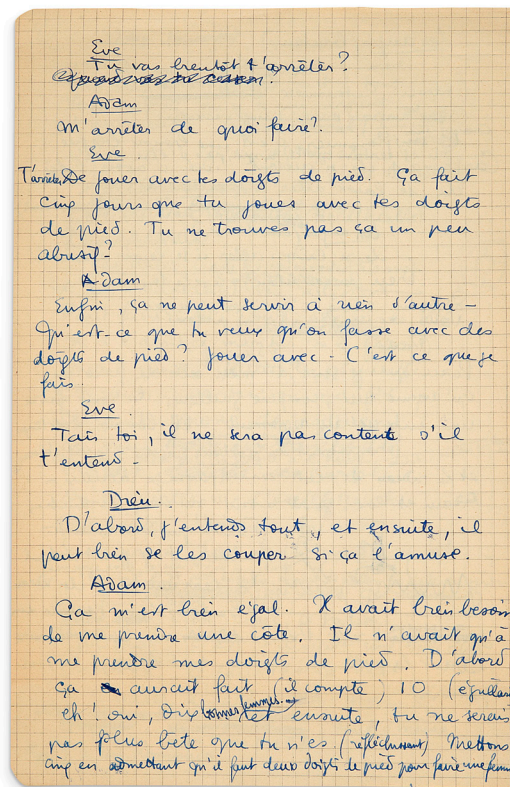 Eve
Tu vas bientôt t'arrêter?
Adam
M'arrêter de quoi faire?.
Eve.
T'arrêter De jouer avec tes doigts de pied. Ça fait
cinq jours que tu joues avec tes doigts
de pied. Tu ne trouves pas ça un peu
abusif?
Adam
Enfin, ça ne peut servir à rien d'autre -
Qu'est-ce que tu veux qu'on fasse avec des
doigts de pied? Jouer avec - C'est ce que je
fais.
Eve.
Tais toi, il ne sera pas content s'il
t'entend -
Dieu.
D'abord, j'entends tout, et ensuite, il
peut bien se les couper si ça l'amuse.
Adam.
Ça m'est bien égal. Il avait bien besoin
de me prendre une côte. Il n'avait qu'à
me prendre mes doigts de pied. D'abord
ça aurait fait (il compte) 10
eh! oui, dix bonnes femmes et ensuite, tu ne serais
pas plus bête que tu n'es (réfléchissant) Mettons
cinq en admettant qu'il faut deux doigts de pied pour faire une